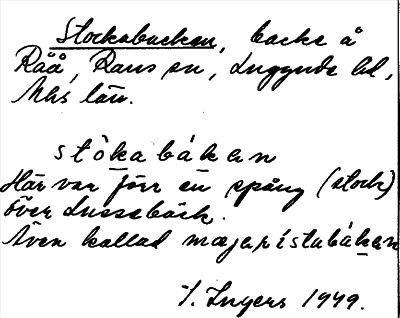 Stockabacken, backe å
Råå, Raus sn, Luggude hd,
Mhs län.
stôkabákan
Här var förr en spång (stock)
över Lussebäck.
Även kallad mæjarístabákan
I. Ingers 1949.